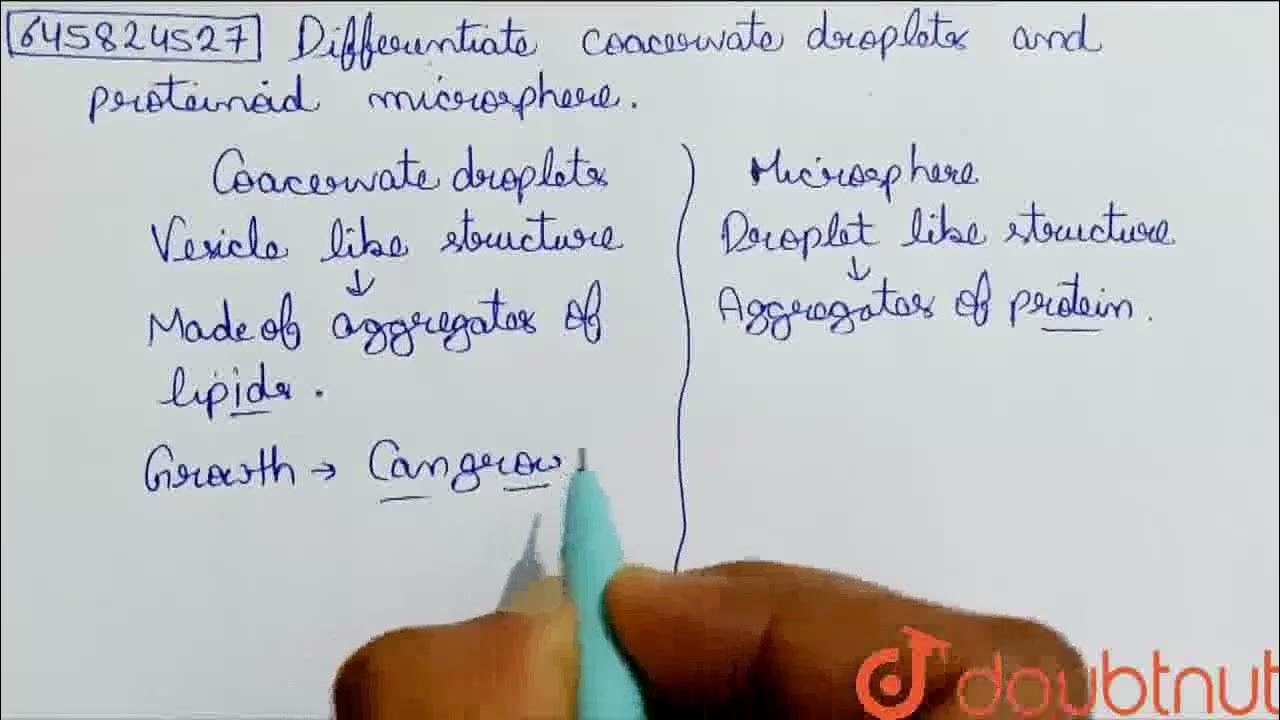 645824527 Differentiate coacervate droplets and
proteinoid microsphere.
Coacervate droplets
Vesicle like structure
↓
Made of aggregates of
lipids.
Growth → Can grow
Microsphere
Droplet like structure
↓
Aggregates of protein.
doubtnut